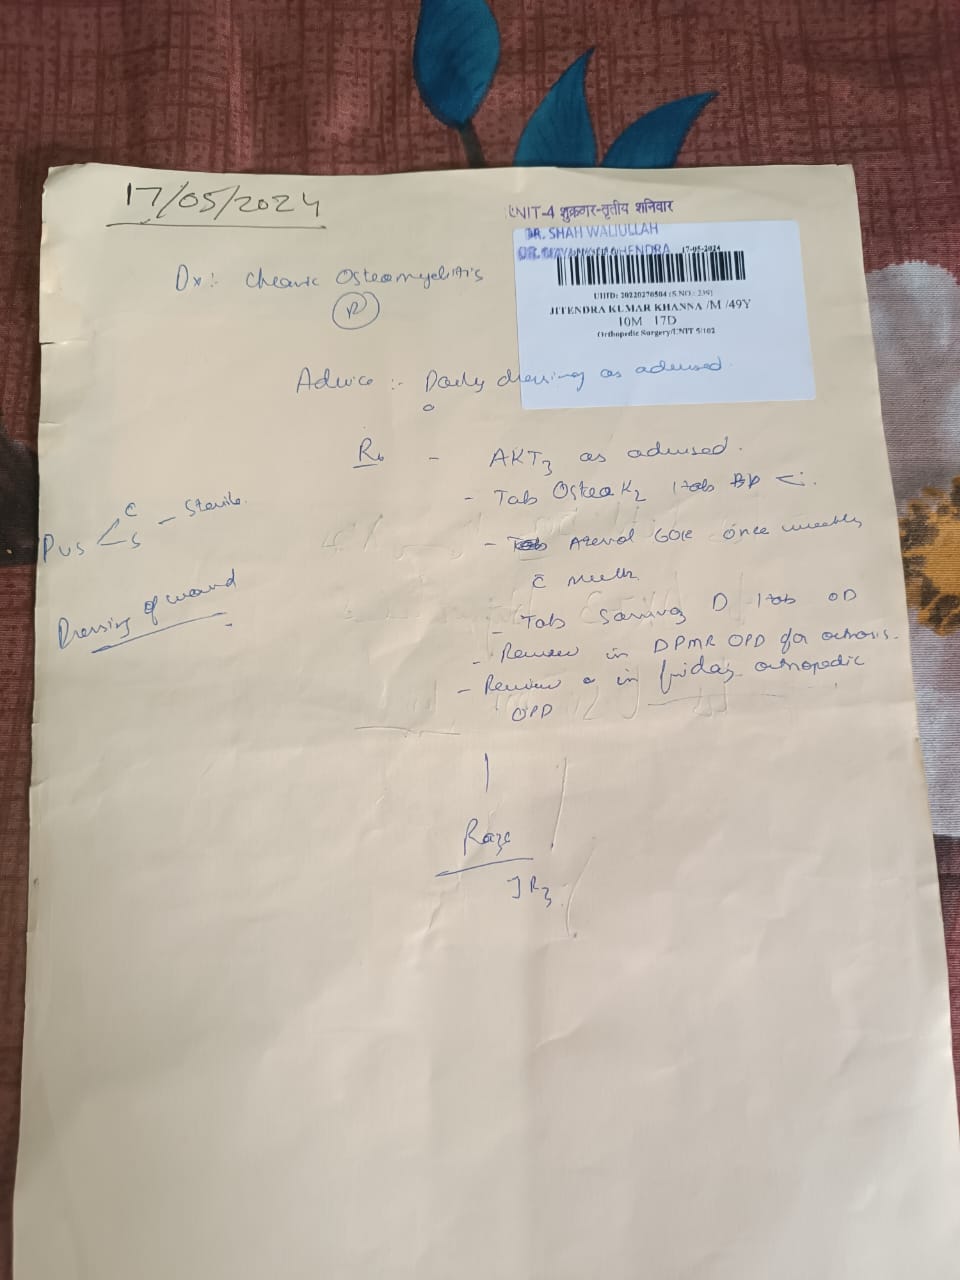 17/05/2024
UNIT-4 शुक्रवार-तृतीय शनिवार
DR. SHAH WALIULLAH
17-05-2024
UHID: 20220270504 (S.NO.: 239)
JITENDRA KUMAR KHANNA /M /49Y
10M 17D
Orthopedic Surgery/UNIT 5/102
Dx:- Chronic Osteomyelitis
R
Advice :- Daily dressing as advised.
Rx - AKT3 as advised.
- Tab Osteo K2 1 tab BD
Pus C S - Sterile.
- 60K once weekly
c milk
Dressing of wound
- Tab D 1 tab OD
- Review in DPMR OPD for orthosis.
- Review in friday orthopedic
OPD
JR3